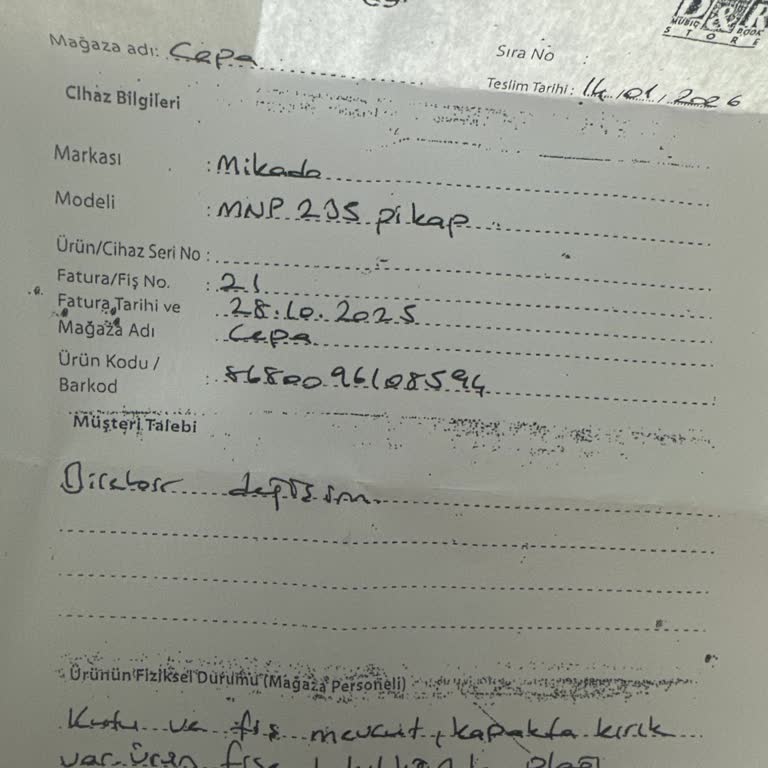 D&R
MUSIC BOOK
STORE
Mağaza adı: Cepa
Sıra No :
Teslim Tarihi : 14/01/2026
Cihaz Bilgileri
Markası : Mikado
Modeli : MNP 235 pikap
Ürün/Cihaz Seri No :
Fatura/Fiş No. : 21
Fatura Tarihi ve 28.10.2025
Mağaza Adı Cepa
Ürün Kodu /
Barkod : 8680096108594
Müşteri Talebi
değişim
Ürünün Fiziksel Durumu (Mağaza Personeli)
Kutu ve fiş mevcut, kapakta kırık
var. Ürün plağı